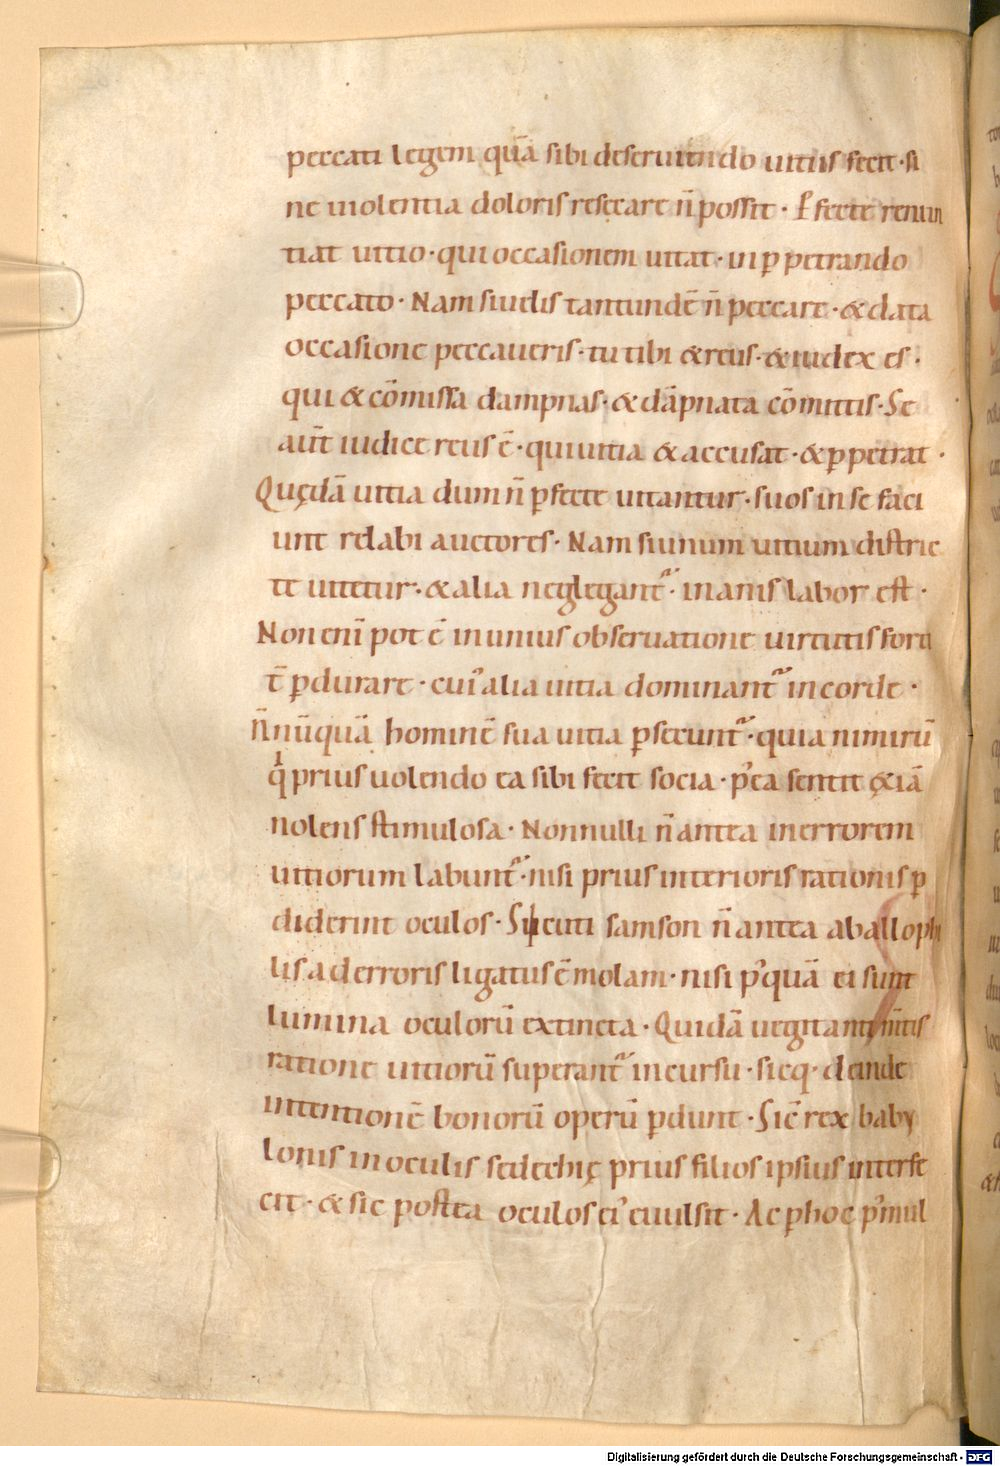 peccati legem quā sibi deseruiendo uitiis fecit · si
ne uiolentia doloris resecare n̄ possit · ꝑfecte renun
tiat uitio · qui occasionem uitat · in ꝑpetrando
peccato · Nam si uelis tantundē n̄ peccare · & data
occasione peccaueris · tu tibi & reus · & iudex es ·
qui & cōmissa dampnas · & dāpnata cōmittis · Se
aūt iudice reus ē · qui uitia & accusat · & ꝑpetrat ·
Quędā uitia dum n̄ ꝑfecte uitantur · suos in se faci
unt relabi auctores · Nam si unum uitium distric
te uitetur · & alia neglegant᷑ · inanis labor est ·
Non eni pot ē in unius obseruatione uirtutis forti
t̄ ꝑdurare · cui᾿ alia uitia dominant᷑ in corde ·
N̄nūquā hominē sua uitia ꝑsecunt᷑ · quia nimirū
qͥ prius uolendo ea sibi fecit socia · p᾿ea sentit &iā
nolens stimulosa · Nonnulli n̄ antea in errorem
uitiorum labunt᷑ · nisi prius interioris rationis ꝑ
diderint oculos · Sicuti samson n̄ antea ab allophi
lis ad erroris ligatus ē molam · nisi p᾿quā ei sunt
lumina oculorū extincta · Quidā uegitanti m̄tis
ratione uitiorū superant᷑ incursu · sicq· deinde
intentionē bonorū operū ꝑdunt · Sic̄ rex baby
lonis in oculis sedechię prius filios ipsius interfe
cit · & sic postea oculos ei᾿ euulsit · Ac ꝑ hoc p᾿mul
Digitalisierung gefördert durch die Deutsche Forschungsgemeinschaft - DFG